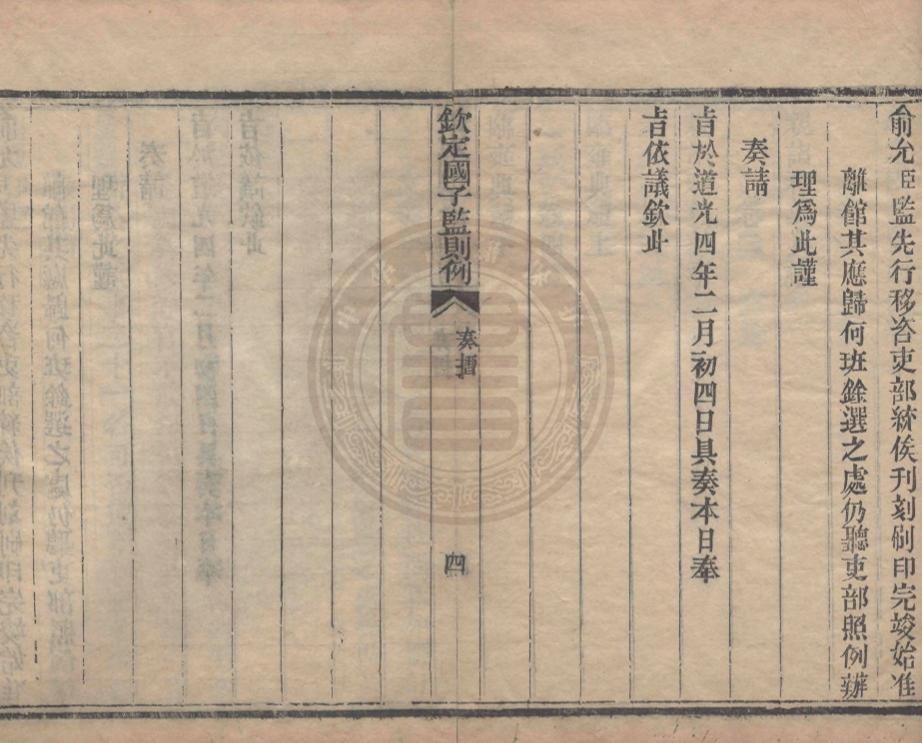 俞允臣監先行移咨吏部統俟刊刻刷印完竣始准
離館其應歸何班銓選之處仍聽吏部照例辦
理爲此謹
奏請
旨於道光四年二月初四日具奏本日奉
旨依議欽此
欽定國子監則例 奏摺 四